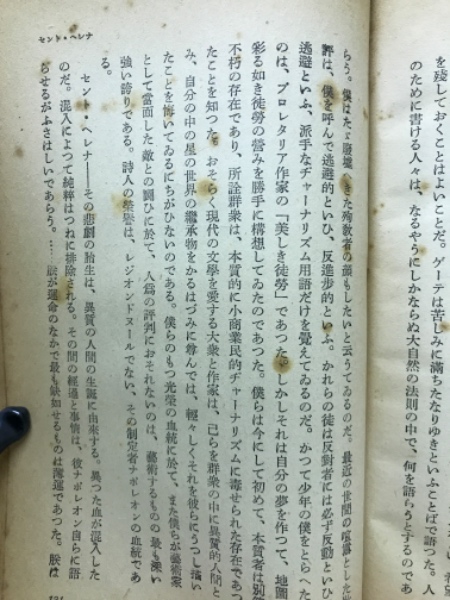 を殘しておくことはよいことだ。ゲーテは苦しみに滿ちたなりゆきといふことばで語つた。人
のために書ける人々は、なるやうにしかならぬ大自然の法則の中で、何を語らうとするのであ
セント・ヘレナ
らう。僕はたゞ廢墟へきた殉敎者の顏もしたいと云うてゐるのだ。最近の世間の喧囂とした
評は、僕を呼んで逃避的といひ、反進步的といふ。かれらの徒は反對者には必ず反動といひ
逃避といふ、派手なヂャーナリズム用語だけを覺えてゐるのだ。かつて少年の僕をとらへた
のは、プロレタリア作家の「美しき徒勞」であつた。しかしそれは自分の夢を作つて、地圖
彩る如き徒勞の營みを勝手に構想してゐたのであつた。僕らは今にして初めて、本質者は別
不朽の存在であり、所詮群衆は、本質的に小商業民的ヂャーナリズムに毒せられた存在であつ
たことを知つた。おそらく現代の文學を愛する大衆と作家は、己らを群衆の中に異質的人間と
み、自分の中の星の世界の繼承物をかるはづみに尊んでは、輕々しくそれを彼らにうつし描い
たことを悔いてゐるにちがひないのである。僕らのもつ光榮の血統に於て、また僕らが藝術家
として當面した敵との鬪ひに於て、人爲の評判におそれないのは、藝術するものの最も深い
强い誇りである。詩人の榮譽は、レジオンドヌールでない、その制定者ナポレオンの血統であ
る。
セント・ヘレナ――その悲劇の胎生は、異質の人間の生誕に由來する。異つた血が混入した
のだ。混入によつて純粹はつねに排除される。その間の經過と事情は、彼ナポレオン自らに語
らせるがふさはしいであらう。……朕が運命のなかで最も缺如せるものは薄運であつた。朕は